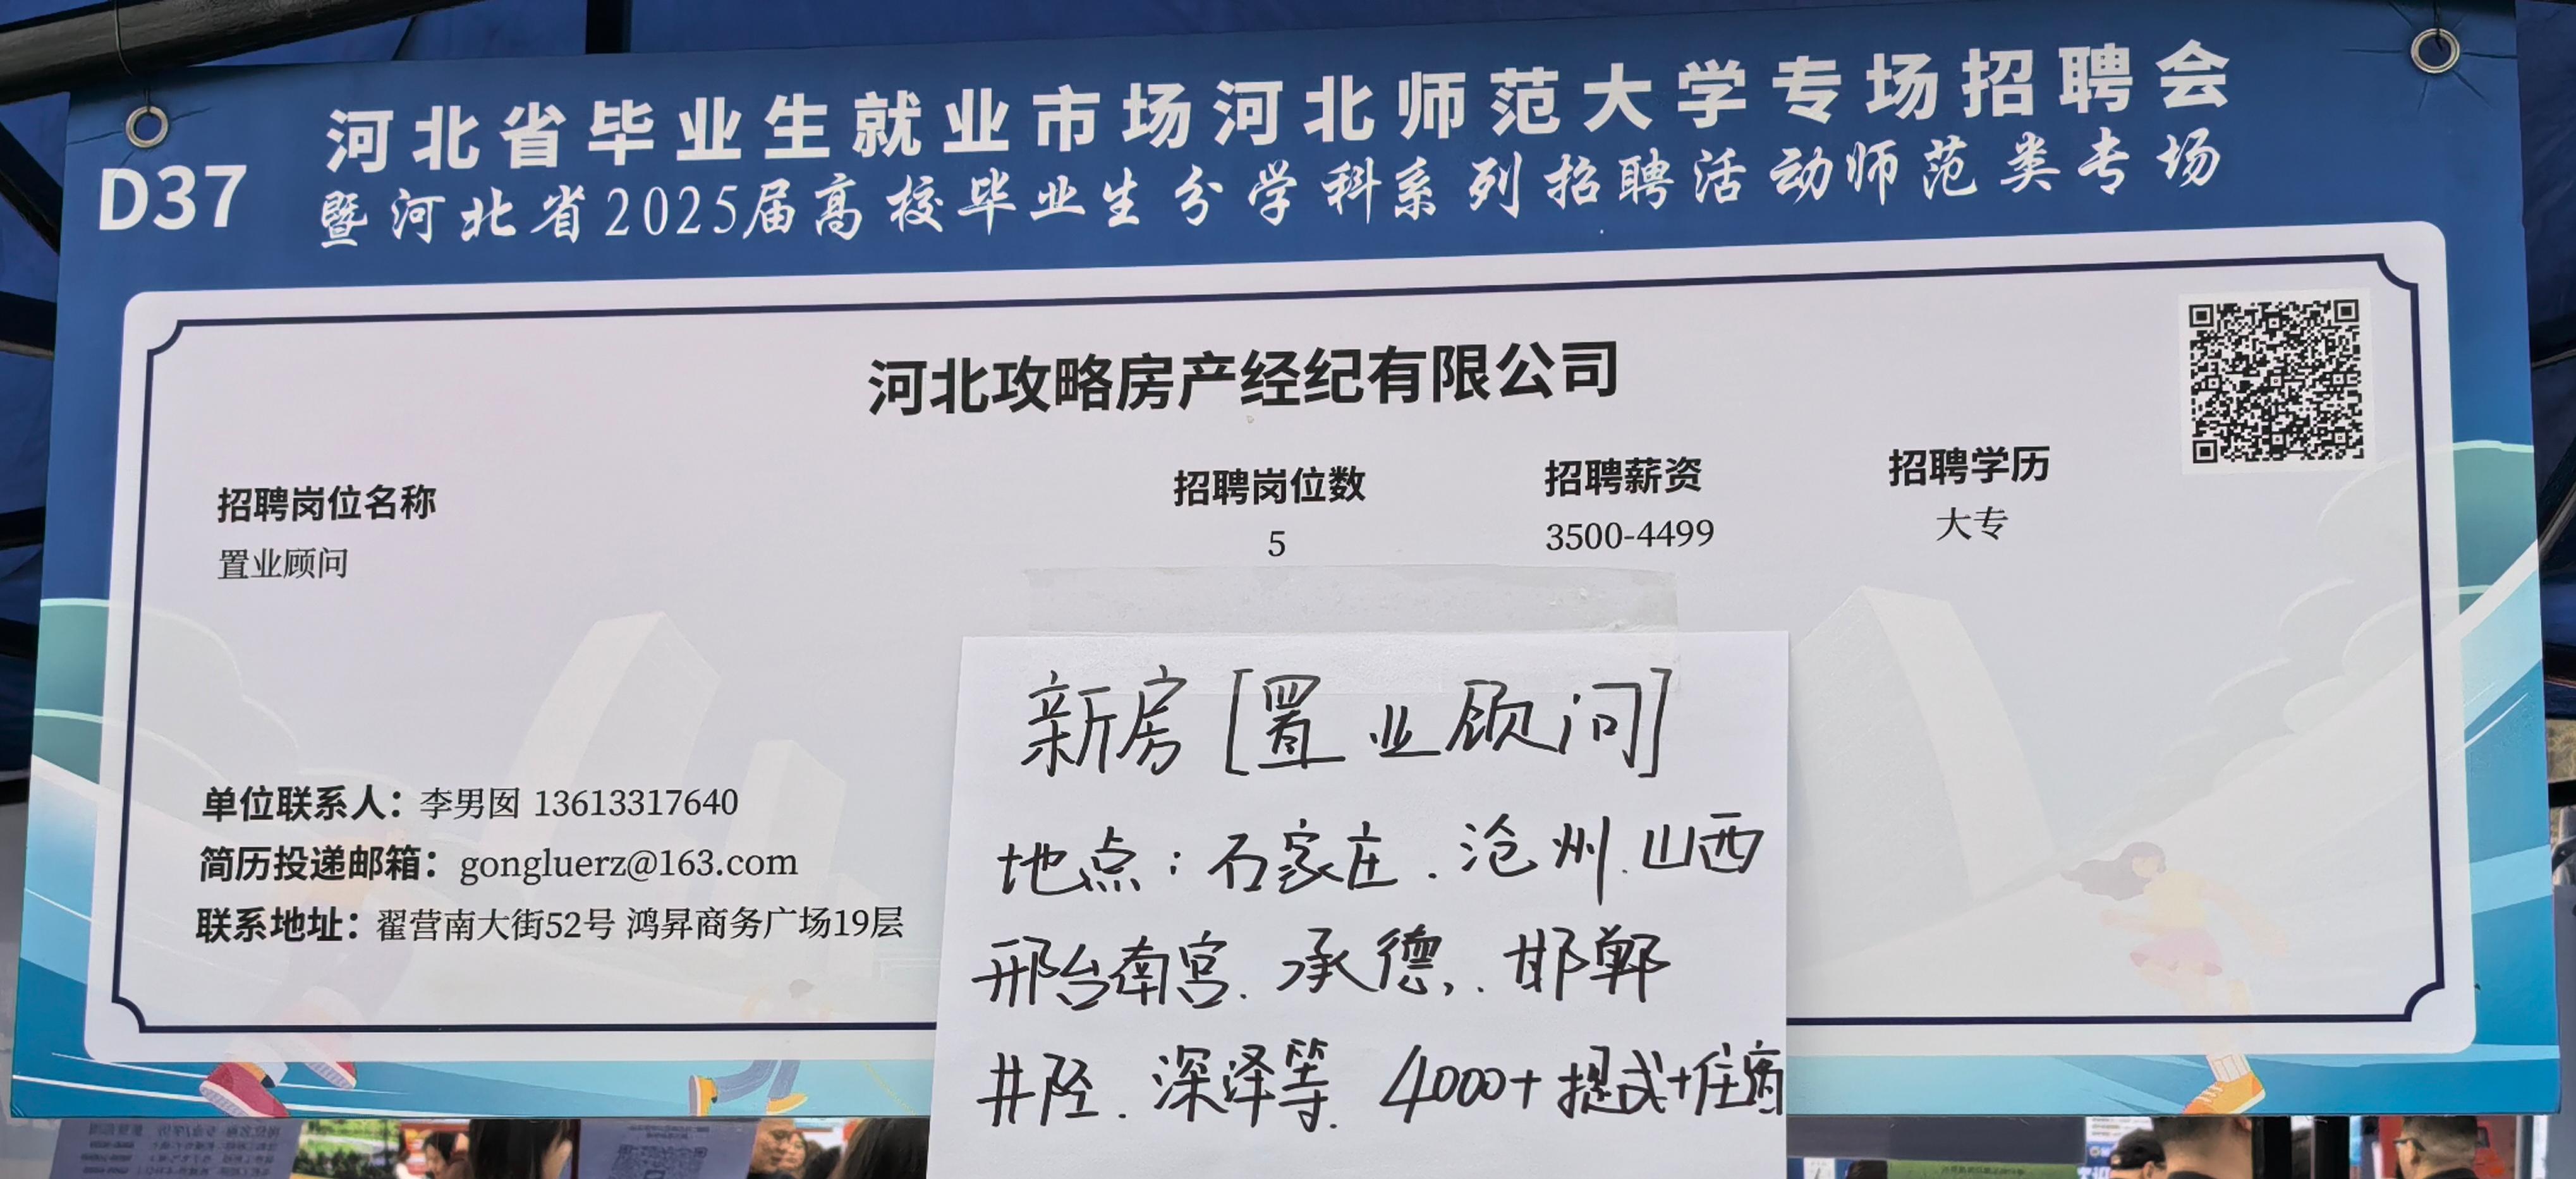 D37
河北省毕业生就业市场河北师范大学专场招聘会
暨河北省2025届高校毕业生分学科系列招聘活动师范类专场
河北攻略房产经纪有限公司
招聘岗位名称 招聘岗位数 招聘薪资 招聘学历
置业顾问 5 3500-4499 大专
单位联系人：李男囡 13613317640
简历投递邮箱：gongluerz@163.com
联系地址：翟营南大街52号 鸿昇商务广场19层
新房[置业顾问]
地点：石家庄.沧州.山西
邢台南宫.承德,.邯郸
井陉.深泽等.4000+提成+住宿